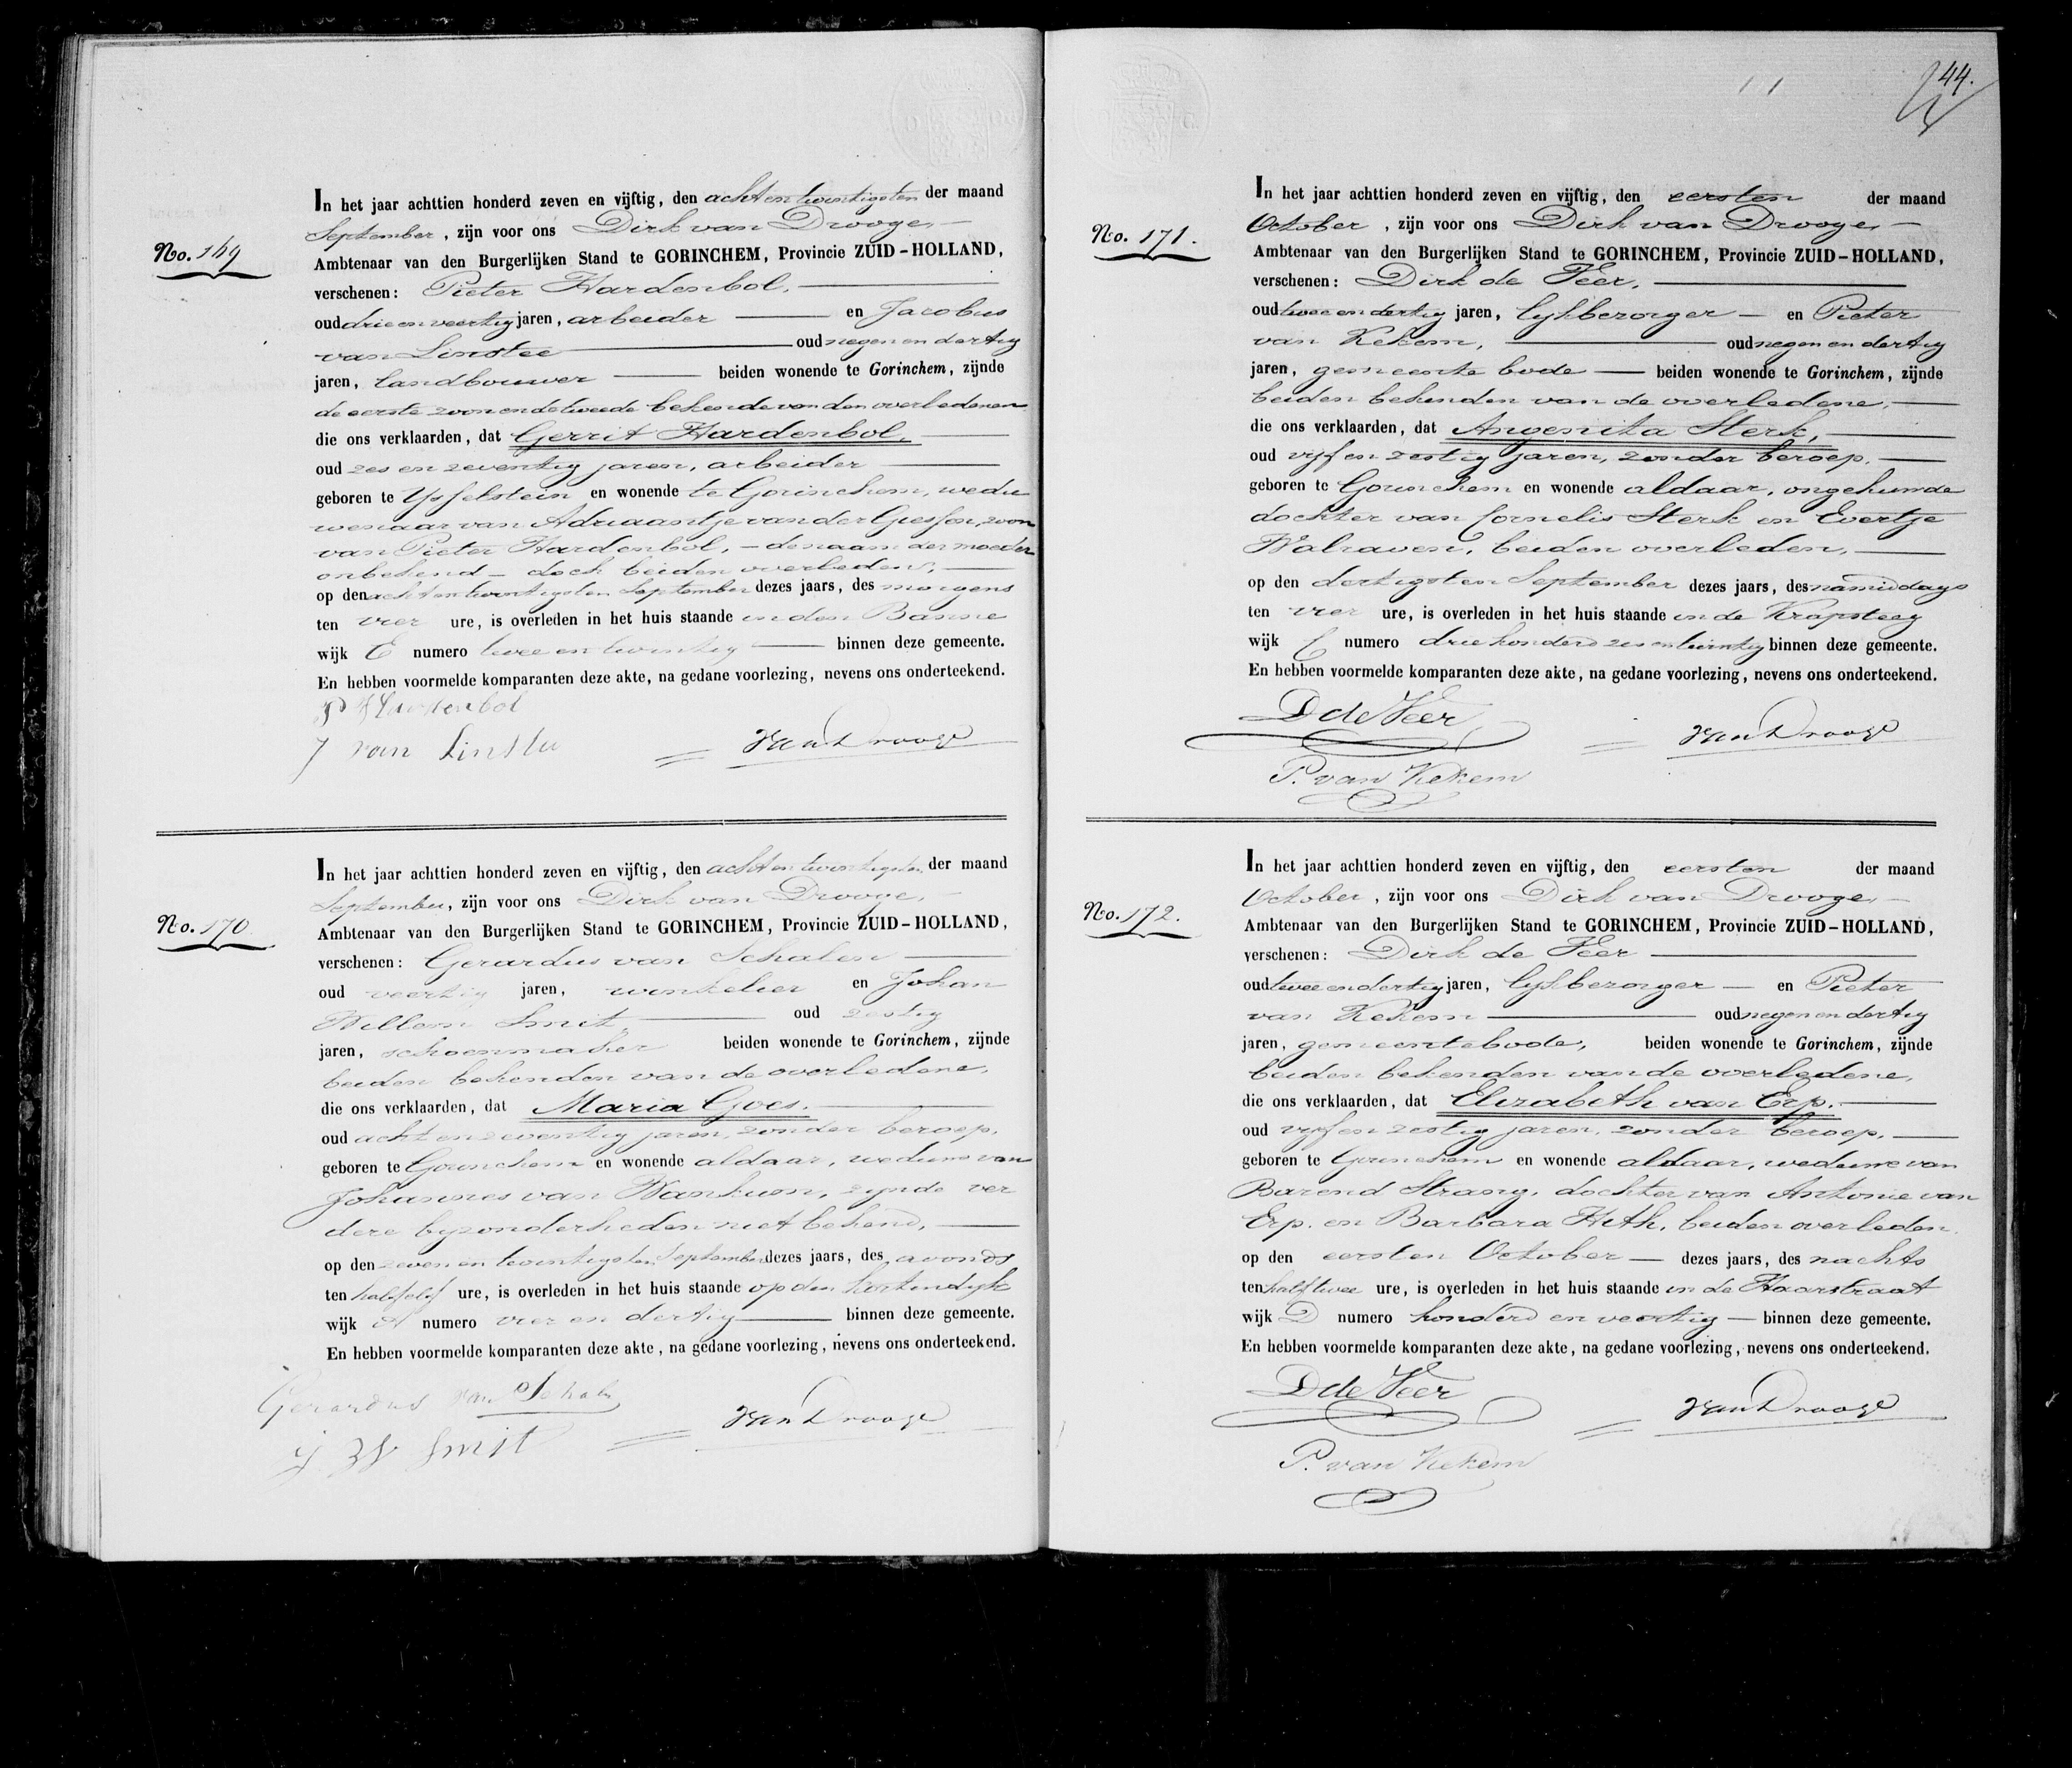 In het jaar achttien honderd zeven en vijftig, den achtentwintigsten der maand
September, zijn voor ons Dirk van Drooge,
No. 169
Ambtenaar van den Burgerlijken Stand te GORINCHEM, Provincie ZUID-HOLLAND,
verschenen: Pieter Hardenbol,
oud drie en veertig jaren, arbeider en Jacobus
van Linstee oud negen en dertig
jaren, landbouwer beiden wonende te Gorinchem, zijnde
de eerste zoon en de tweede bekende van den overledenen
die ons verklaarden, dat Gerrit Hardenbol,
oud zes en zeventig jaren, arbeider
geboren te Ysselstein en wonende te Gorinchem, wedu
wenaar van Adriaantje van der Giessen, zoon
van Pieter Hardenbol, - de naam der moeder
onbekend - doch beiden overleden,
op den achtentwintigsten September dezes jaars, des morgens
ten vier ure, is overleden in het huis staande in den Banne
wijk E numero twee en twintig binnen deze gemeente.
En hebben voormelde komparanten deze akte, na gedane voorlezing, nevens ons onderteekend.
P Hardenbol
J van Linstee
van Drooge
In het jaar achttien honderd zeven en vijftig, den achtentwintigsten der maand
September, zijn voor ons Dirk van Drooge,
No. 170
Ambtenaar van den Burgerlijken Stand te GORINCHEM, Provincie ZUID-HOLLAND,
verschenen: Gerardus van Schalen
oud veertig jaren, winkelier en Johan
Willem Smit, oud zestig
jaren, schoenmaker beiden wonende te Gorinchem, zijnde
beiden bekenden van de overledene,
die ons verklaarden, dat Maria Goes.
oud acht en zeventig jaren, zonder beroep,
geboren te Gorinchem en wonende aldaar, weduwe van
Johannes van Wankum, zynde ver
dere byzonderheden niet bekend,
op den zeven en twintigsten September dezes jaars, des avonds
ten half elf ure, is overleden in het huis staande op den Kortendyk
wijk A numero vier en dertig binnen deze gemeente.
En hebben voormelde komparanten deze akte, na gedane voorlezing, nevens ons onderteekend.
Gerardus van Schalen
J W Smit
van Drooge
44.
In het jaar achttien honderd zeven en vijftig, den eersten der maand
October, zijn voor ons Dirk van Drooge,
No. 171.
Ambtenaar van den Burgerlijken Stand te GORINCHEM, Provincie ZUID-HOLLAND,
verschenen: Dirk de Veer,
oud twee en dertig jaren, lykbezorger en Pieter
van Kekem, oud negen en dertig
jaren, gemeente bode beiden wonende te Gorinchem, zijnde
beiden bekenden van de overledene,
die ons verklaarden, dat Angenita Sterk,
oud vyf en zestig jaren, zonder beroep,
geboren te Gorinchem en wonende aldaar, ongehuwde
dochter van Cornelis Sterk en Evertje
Walraven, beiden overleden,
op den dertigsten September dezes jaars, des namiddags
ten vier ure, is overleden in het huis staande in de Krapsteeg
wijk C numero driehonderd zes en twintig binnen deze gemeente.
En hebben voormelde komparanten deze akte, na gedane voorlezing, nevens ons onderteekend.
D de Veer
van Drooge
P. van Kekem
In het jaar achttien honderd zeven en vijftig, den eersten der maand
October, zijn voor ons Dirk van Drooge,
No. 172.
Ambtenaar van den Burgerlijken Stand te GORINCHEM, Provincie ZUID-HOLLAND,
verschenen: Dirk de Veer
oud twee en dertig jaren, lykbezorger en Pieter
van Kekem oud negen en dertig
jaren, gemeentebode, beiden wonende te Gorinchem, zijnde
beiden bekenden van de overledene,
die ons verklaarden, dat Elizabeth van Erp.
oud vyf en zestig jaren, zonder beroep,
geboren te Gorinchem en wonende aldaar, weduwe van
Barend Strang, dochter van Antonie van
Erp. en Barbara Hith, beiden overleden.
op den eersten October dezes jaars, des nachts
ten half twee ure, is overleden in het huis staande in de Haarstraat
wijk D numero honderd en veertig binnen deze gemeente.
En hebben voormelde komparanten deze akte, na gedane voorlezing, nevens ons onderteekend.
D de Veer
van Drooge
P. van Kekem